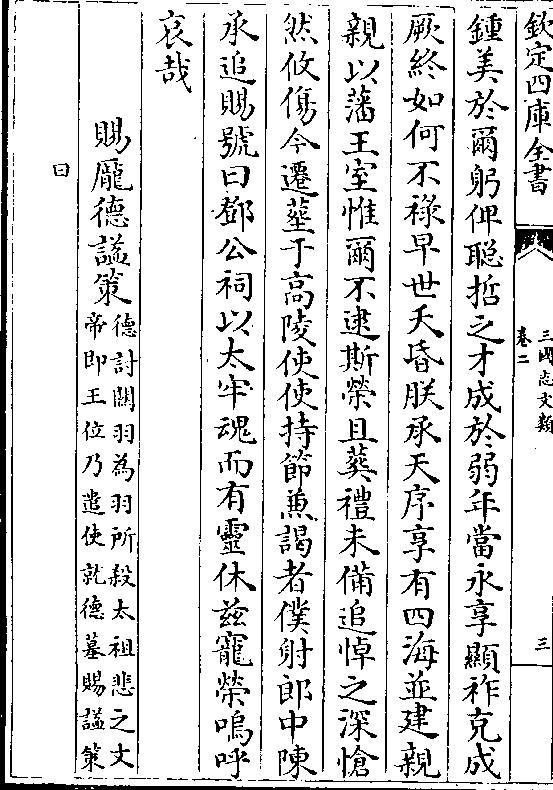 欽定四庫全書
三國志文類
卷二
三
鍾美於爾躬俾聰哲之才成於弱年當永享顯祚克成
厥終如何不祿早世夭昏朕承天序享有四海並建親
親以藩王室惟爾不逮斯榮且葬禮未備追悼之深愴
然攸傷今遷塟于高陵使使持節兼謁者僕射郎中陳
承追賜號曰鄧公祠以太牢魂而有靈休兹寵榮嗚呼
哀哉
賜龐德諡策
德討關羽為羽所殺太祖悲之文
帝即王位乃遣使就德墓賜諡策
曰